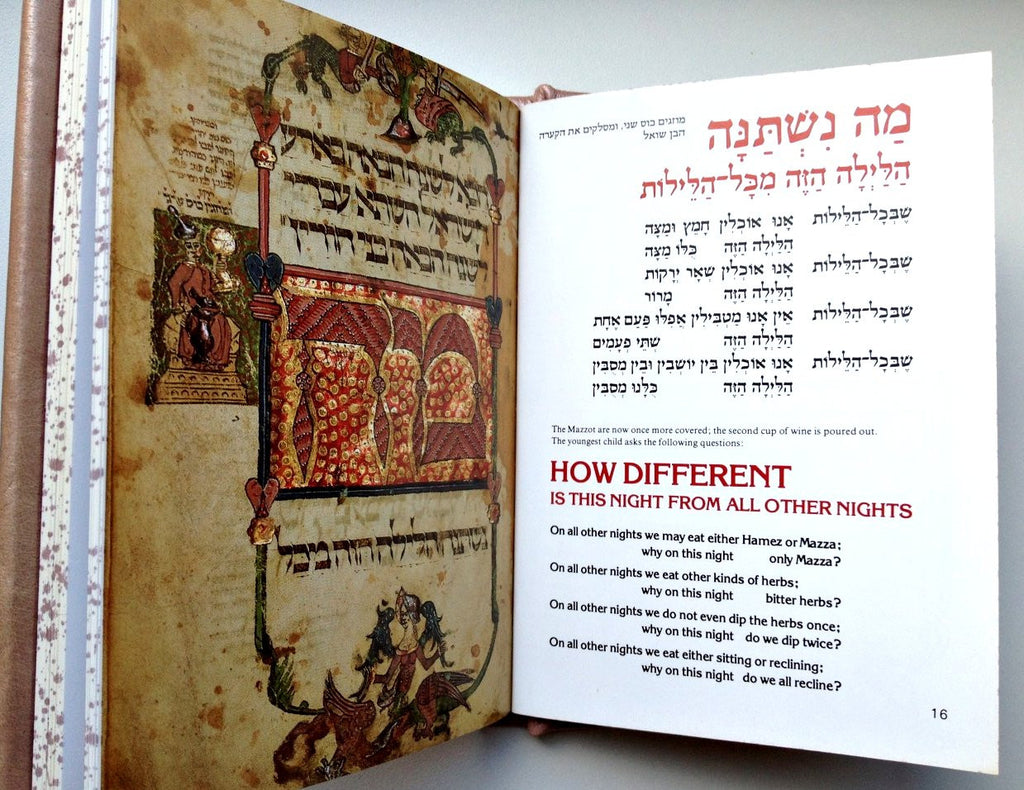 הכא לשנה הבאה בארע
דישראל השתא עבדי
לשנה הבאה בני חורין
מה
נשתנה הלילה הזה מכל
מוזגים כוס שני, ומסלקים את הקערה
הבן שואל
מַה נִּשְׁתַּנָּה
הַלַּיְלָה הַזֶּה מִכָּל־הַלֵּילוֹת
שֶׁבְּכָל־הַלֵּילוֹת אָנוּ אוֹכְלִין חָמֵץ וּמַצָּה
הַלַּיְלָה הַזֶּה כֻּלּוֹ מַצָּה
שֶׁבְּכָל־הַלֵּילוֹת אָנוּ אוֹכְלִין שְׁאָר יְרָקוֹת
הַלַּיְלָה הַזֶּה מָרוֹר
שֶׁבְּכָל־הַלֵּילוֹת אֵין אָנוּ מַטְבִּילִין אֲפִלּוּ פַּעַם אֶחָת
הַלַּיְלָה הַזֶּה שְׁתֵּי פְעָמִים
שֶׁבְּכָל־הַלֵּילוֹת אָנוּ אוֹכְלִין בֵּין יוֹשְׁבִין וּבֵין מְסֻבִּין
הַלַּיְלָה הַזֶּה כֻּלָּנוּ מְסֻבִּין
The Mazzot are now once more covered; the second cup of wine is poured out.
The youngest child asks the following questions:
HOW DIFFERENT
IS THIS NIGHT FROM ALL OTHER NIGHTS
On all other nights we may eat either Hamez or Mazza;
why on this night only Mazza?
On all other nights we eat other kinds of herbs;
why on this night bitter herbs?
On all other nights we do not even dip the herbs once;
why on this night do we dip twice?
On all other nights we eat either sitting or reclining;
why on this night do we all recline?
16